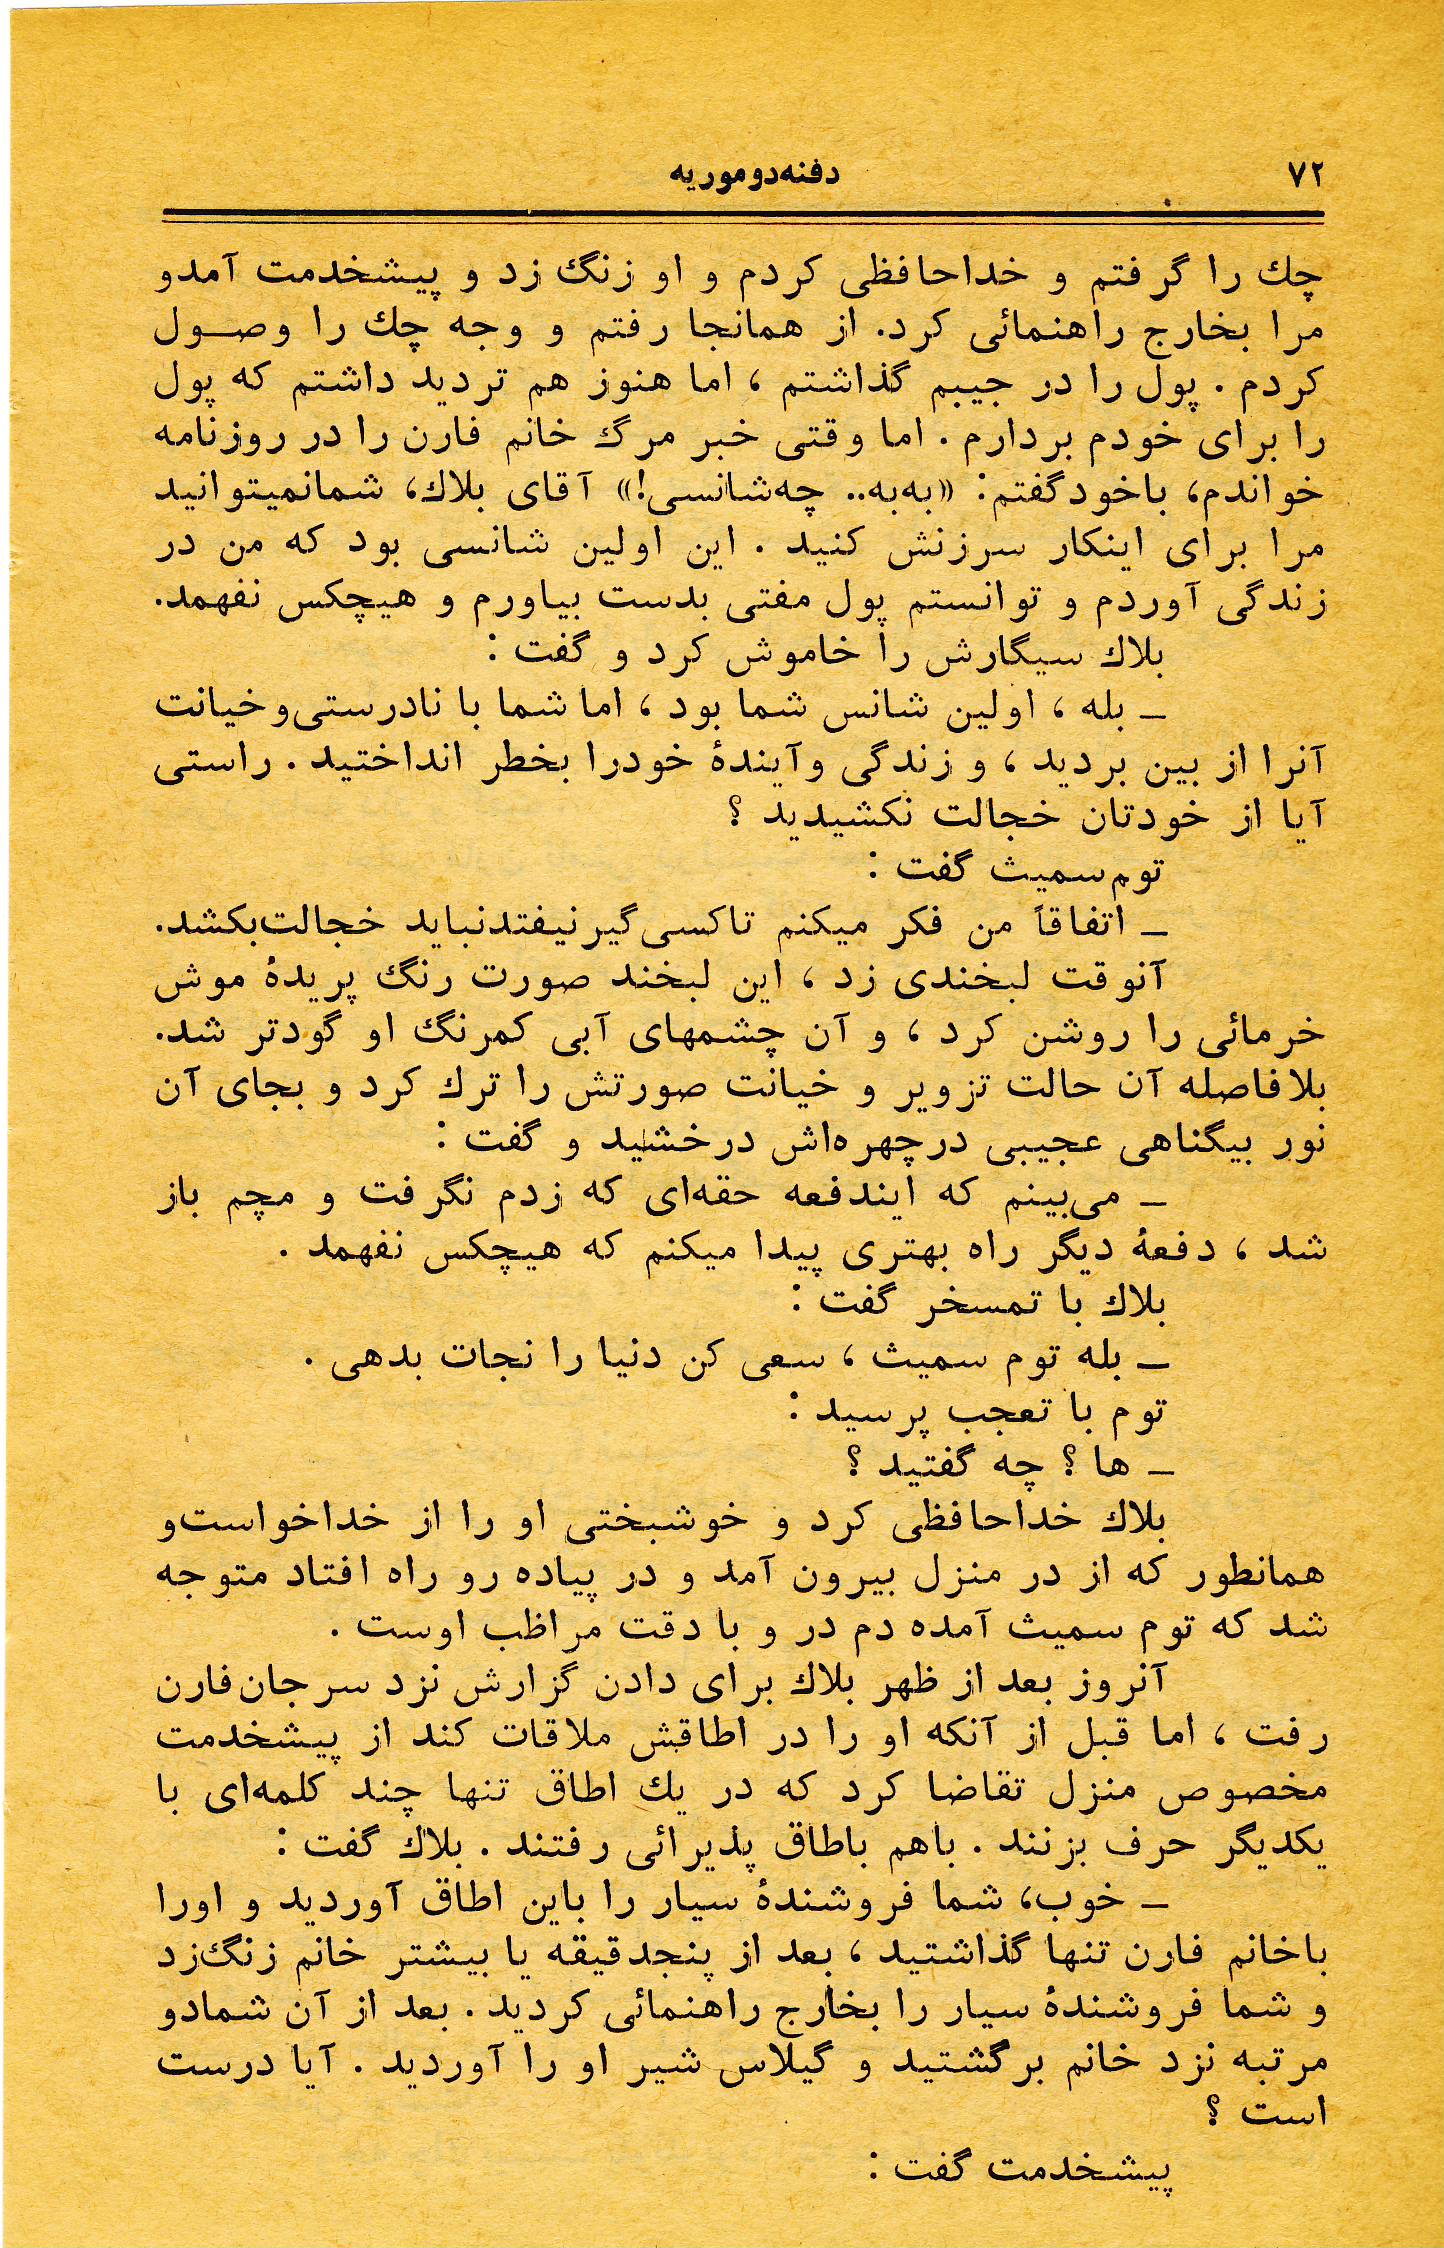 ۷۲
دفنه‌دوموریه
چك را گرفتم و خداحافظی کردم و او زنگ زد و پیشخدمت آمدو
مرا بخارج راهنمائی کرد. از همانجا رفتم و وجه چك را وصـول
کردم . پول را در جیبم گذاشتم ، اما هنوز هم تردید داشتم که پول
را برای خودم بردارم . اما وقتی خبر مرگ خانم فارن را در روزنامه
خواندم، باخودگفتم: «به‌به.. چه‌شانسی!» آقای بلاك، شمانمیتوانید
مرا برای اینکار سرزنش کنید . این اولین شانسی بود که من در
زندگی آوردم و توانستم پول مفتی بدست بیاورم و هیچکس نفهمد.
بلاك سیگارش را خاموش کرد و گفت :
ـ بله ، اولین شانس شما بود ، اما شما با نادرستی‌و خیانت
آنرا از بین بردید ، و زندگی وآیندهٔ خودرا بخطر انداختید . راستی
آیا از خودتان خجالت نکشیدید ؟
توم‌سمیث گفت :
ـ اتفاقاً من فکر میکنم تاکسی‌گیرنیفتدنباید خجالت‌بکشد.
آنوقت لبخندی زد ، این لبخند صورت رنگ پریدهٔ موش
خرمائی را روشن کرد ، و آن چشمهای آبی کمرنگ او گودتر شد.
بلافاصله آن حالت تزویر و خیانت صورتش را ترك کرد و بجای آن
نور بیگناهی عجیبی درچهره‌اش درخشید و گفت :
ـ می‌بینم که ایندفعه حقه‌ای که زدم نگرفت و مچم باز
شد ، دفعهٔ دیگر راه بهتری پیدا میکنم که هیچکس نفهمد .
بلاك با تمسخر گفت :
ـ بله توم سمیث ، سعی کن دنیا را نجات بدهی .
توم با تعجب پرسید :
ـ ها ؟ چه گفتید ؟
بلاك خداحافظی کرد و خوشبختی او را از خداخواست‌و
همانطور که از در منزل بیرون آمد و در پیاده رو راه افتاد متوجه
شد که توم سمیث آمده دم در و با دقت مراظب اوست .
آنروز بعد از ظهر بلاك برای دادن گزارش نزد سرجان‌فارن
رفت ، اما قبل از آنکه او را در اطاقش ملاقات کند از پیشخدمت
مخصوص منزل تقاضا کرد که در یك اطاق تنها چند کلمه‌ای با
یکدیگر حرف بزنند . باهم باطاق پذیرائی رفتند . بلاك گفت :
ـ خوب، شما فروشندهٔ سیار را باین اطاق آوردید و اورا
باخانم فارن تنها گذاشتید ، بعد از پنجدقیقه یا بیشتر خانم زنگ‌زد
و شما فروشندهٔ سیار را بخارج راهنمائی کردید . بعد از آن شمادو
مرتبه نزد خانم برگشتید و گیلاس شیر او را آوردید . آیا درست
است ؟
پیشخدمت گفت :